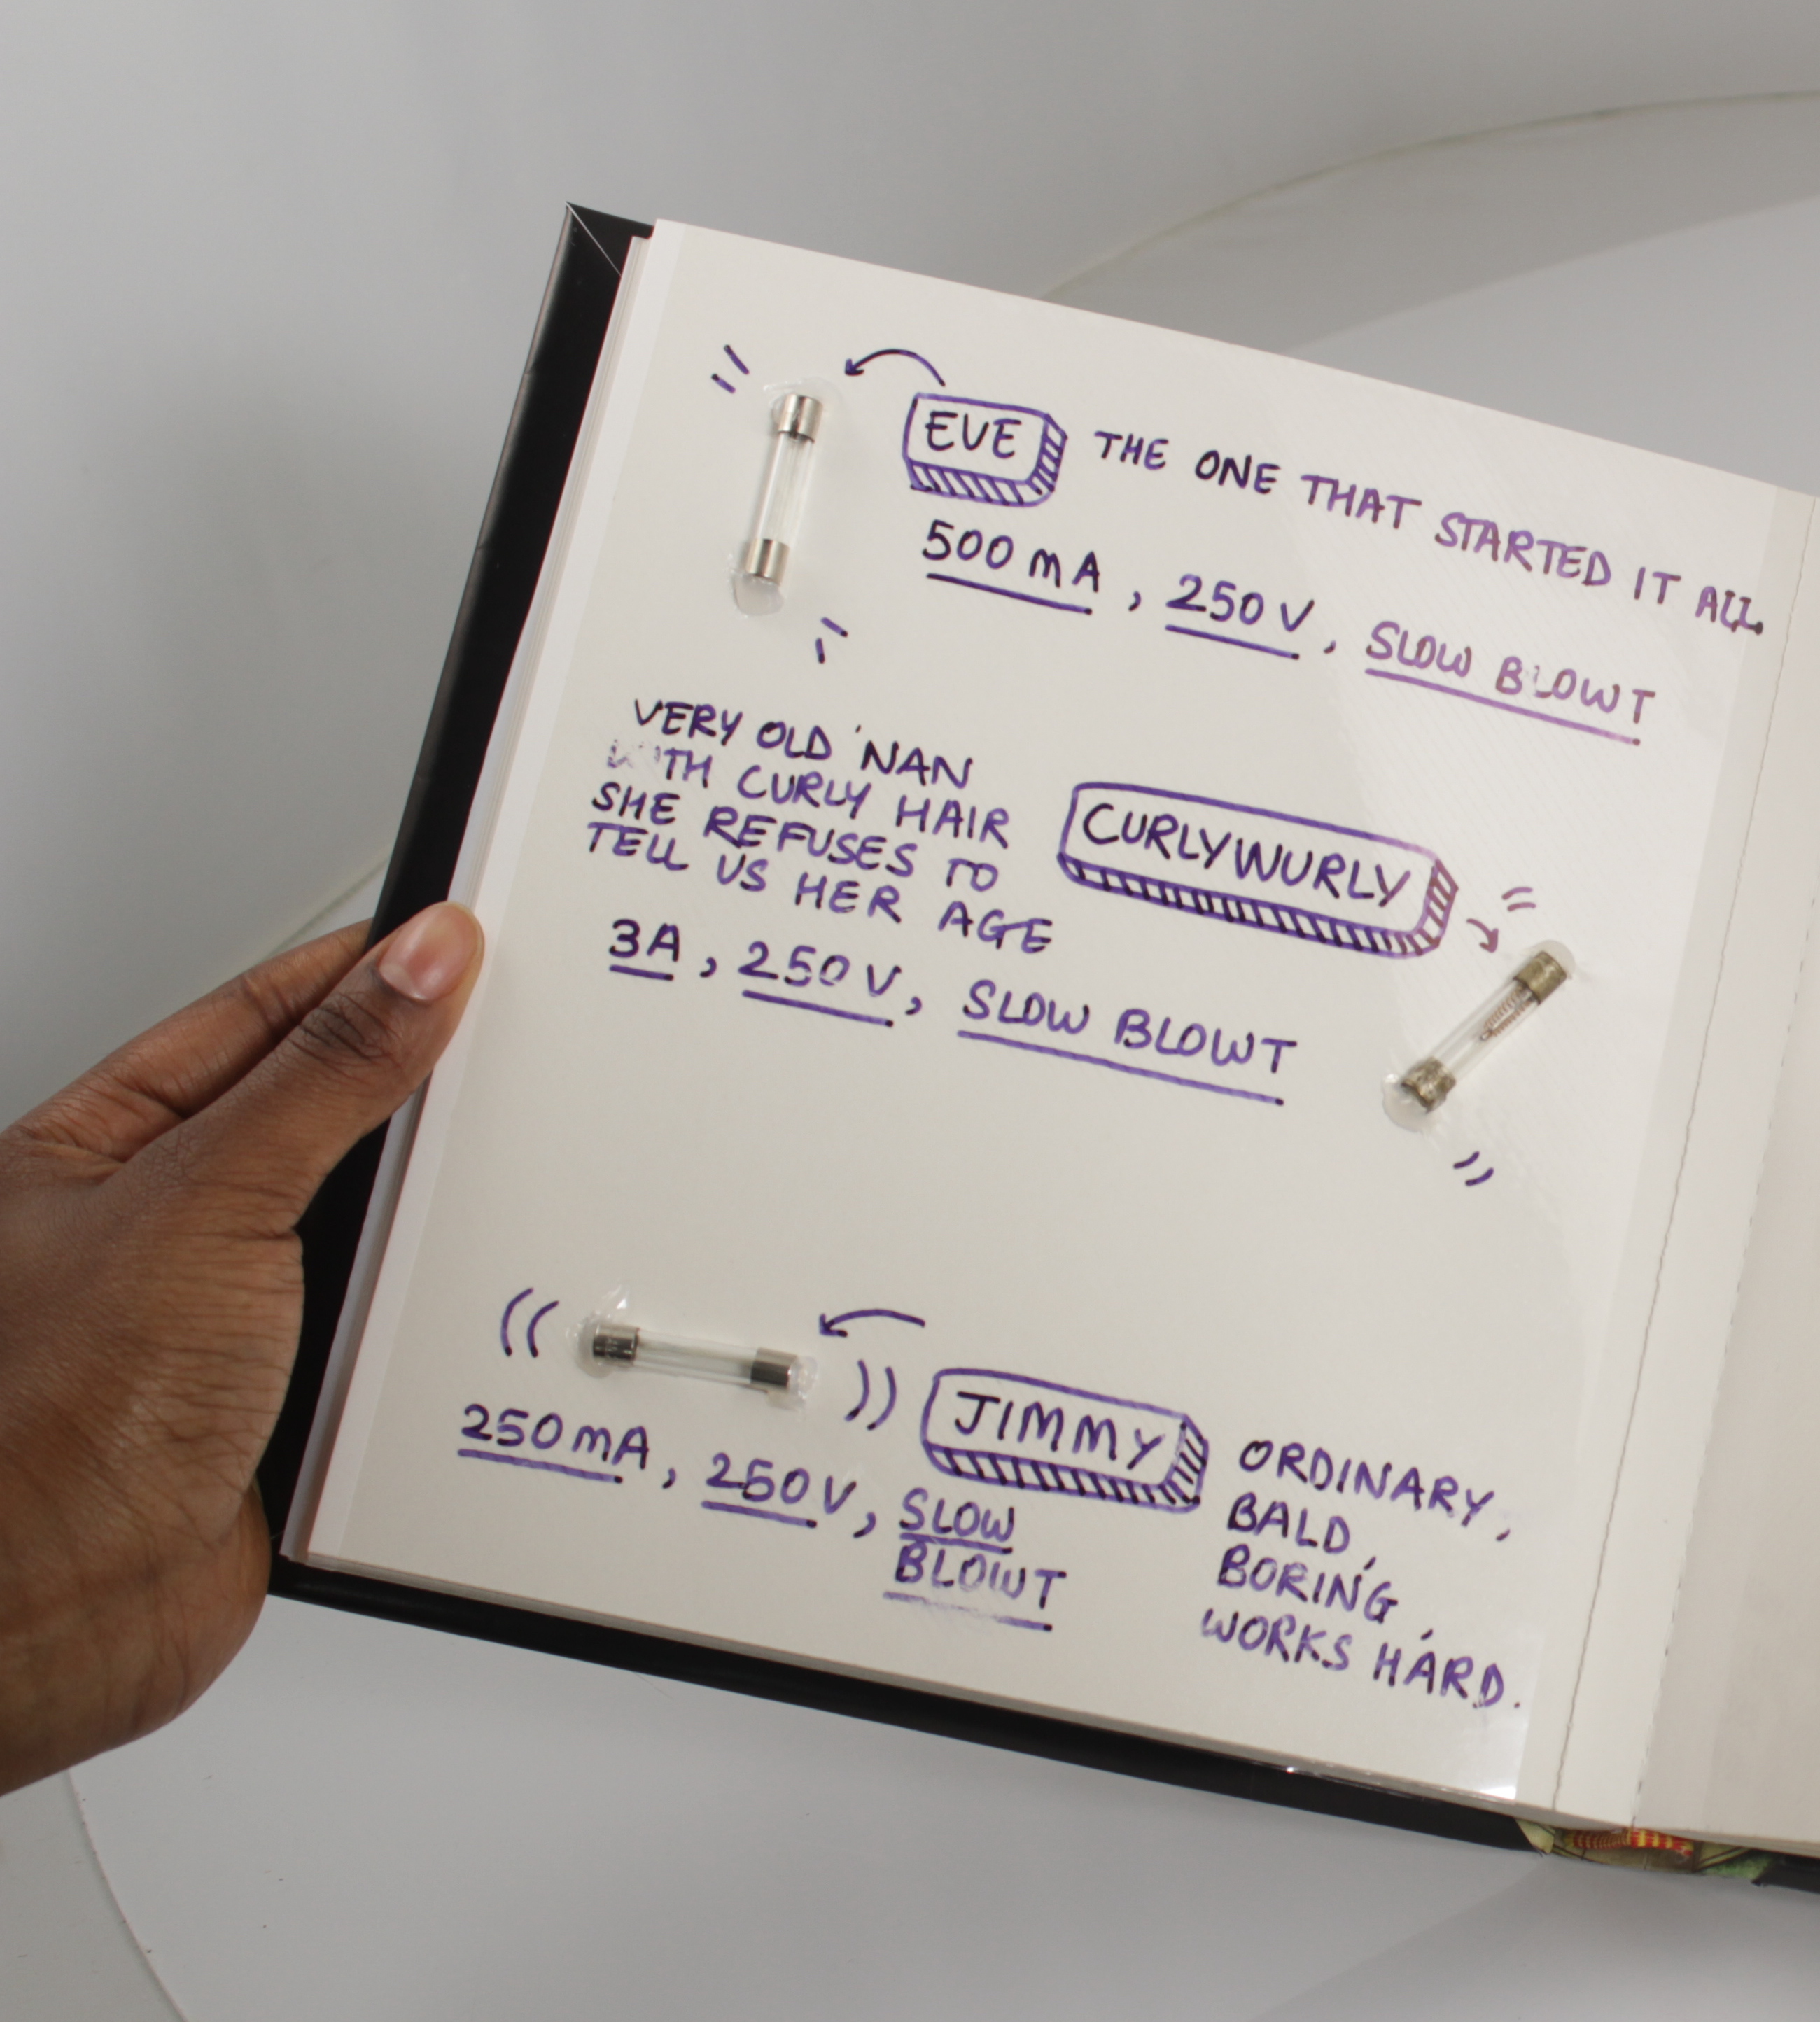 EVE THE ONE THAT STARTED IT ALL.
500 mA, 250 V, SLOW BLOWT
VERY OLD NAN
WITH CURLY HAIR
SHE REFUSES TO
TELL US HER AGE
CURLYWURLY
3A, 250 V, SLOW BLOWT
JIMMY
250 mA, 250 V, SLOW
BLOWT
ORDINARY,
BALD,
BORING,
WORKS HARD.